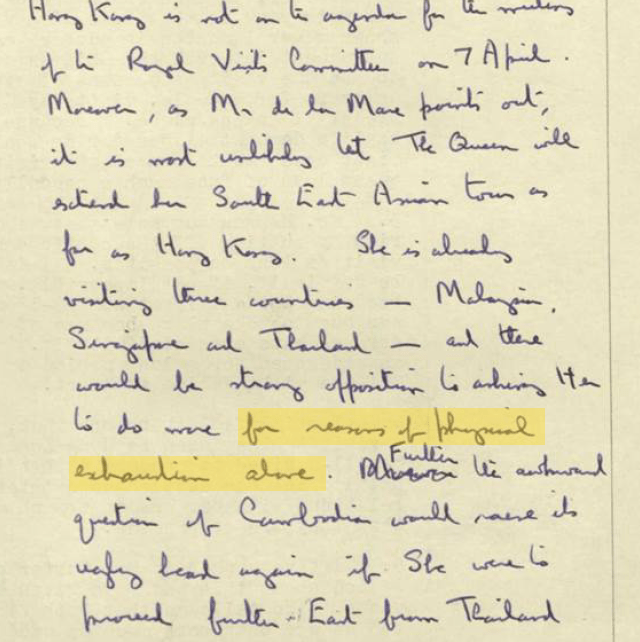 Hong Kong is not on the agenda for the meeting
of the Royal Visits Committee on 7 April.
Moreover, as Mr de la Mare points out,
it is most unlikely that The Queen will
extend her South East Asian tour as
far as Hong Kong. She is already
visiting three countries – Malaysia,
Singapore and Thailand – and there
would be strong opposition to asking Her
to do more for reasons of physical
exhaustion alone. Further the awkward
question of Cambodia would raise its
ugly head again if She were to
proceed further East from Thailand